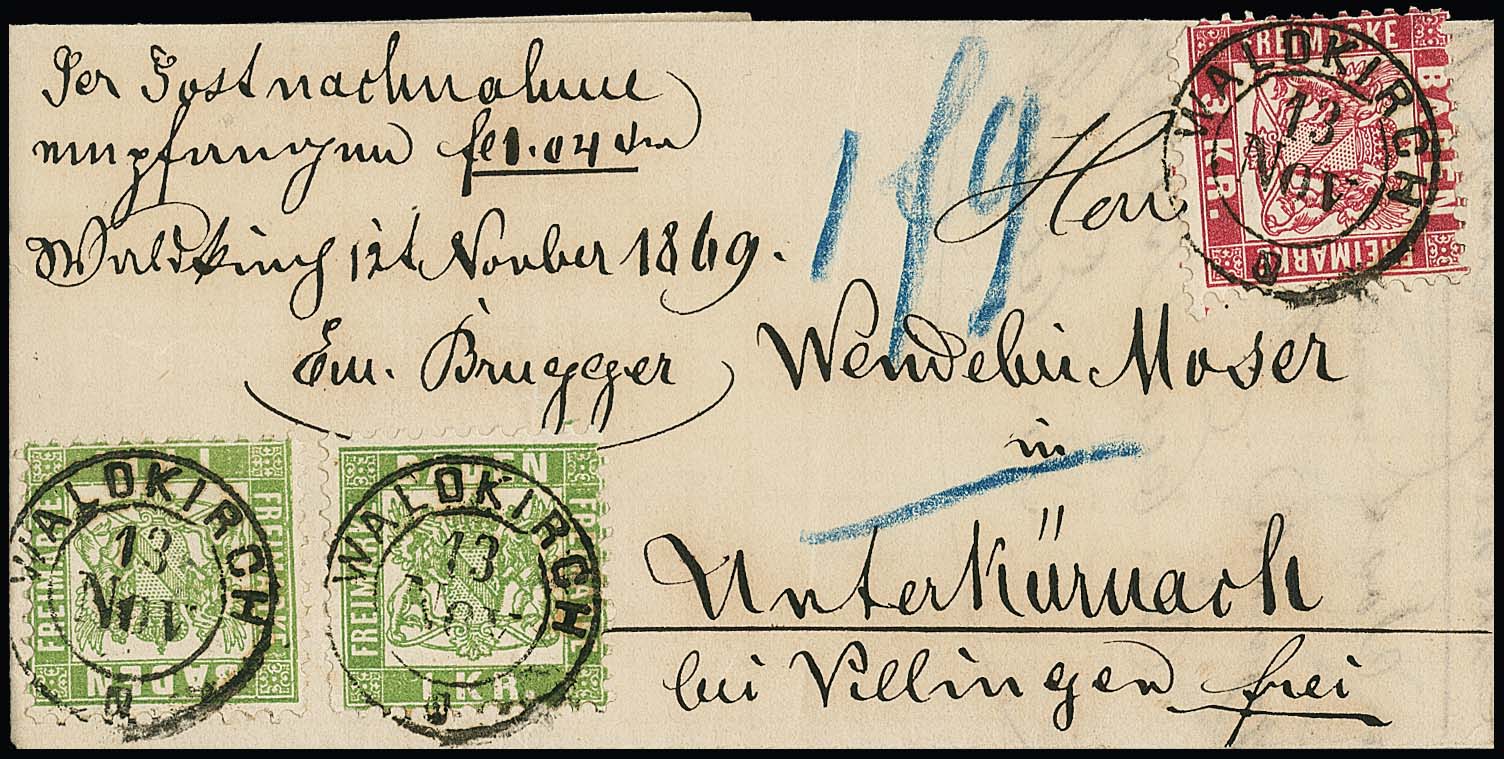 Per Postnachnahme
empfangen fl 1.04 den
Waldkirch 12t Novber 1869.
Em. Brugger
1 f 9
Herrn
Wendelin Moser
in
Unterkürnach
bei Villingen frei
FREIMARKE
BADEN
3 KR.
FREIMARKE
WALDKIRCH
13
NOV
FREIMARKE
FREIMARKE
BADEN
1
WALDKIRCH
13
NOV
BADEN
FREIMARKE
FREIMARKE
1 KR.
WALDKIRCH
13
NOV